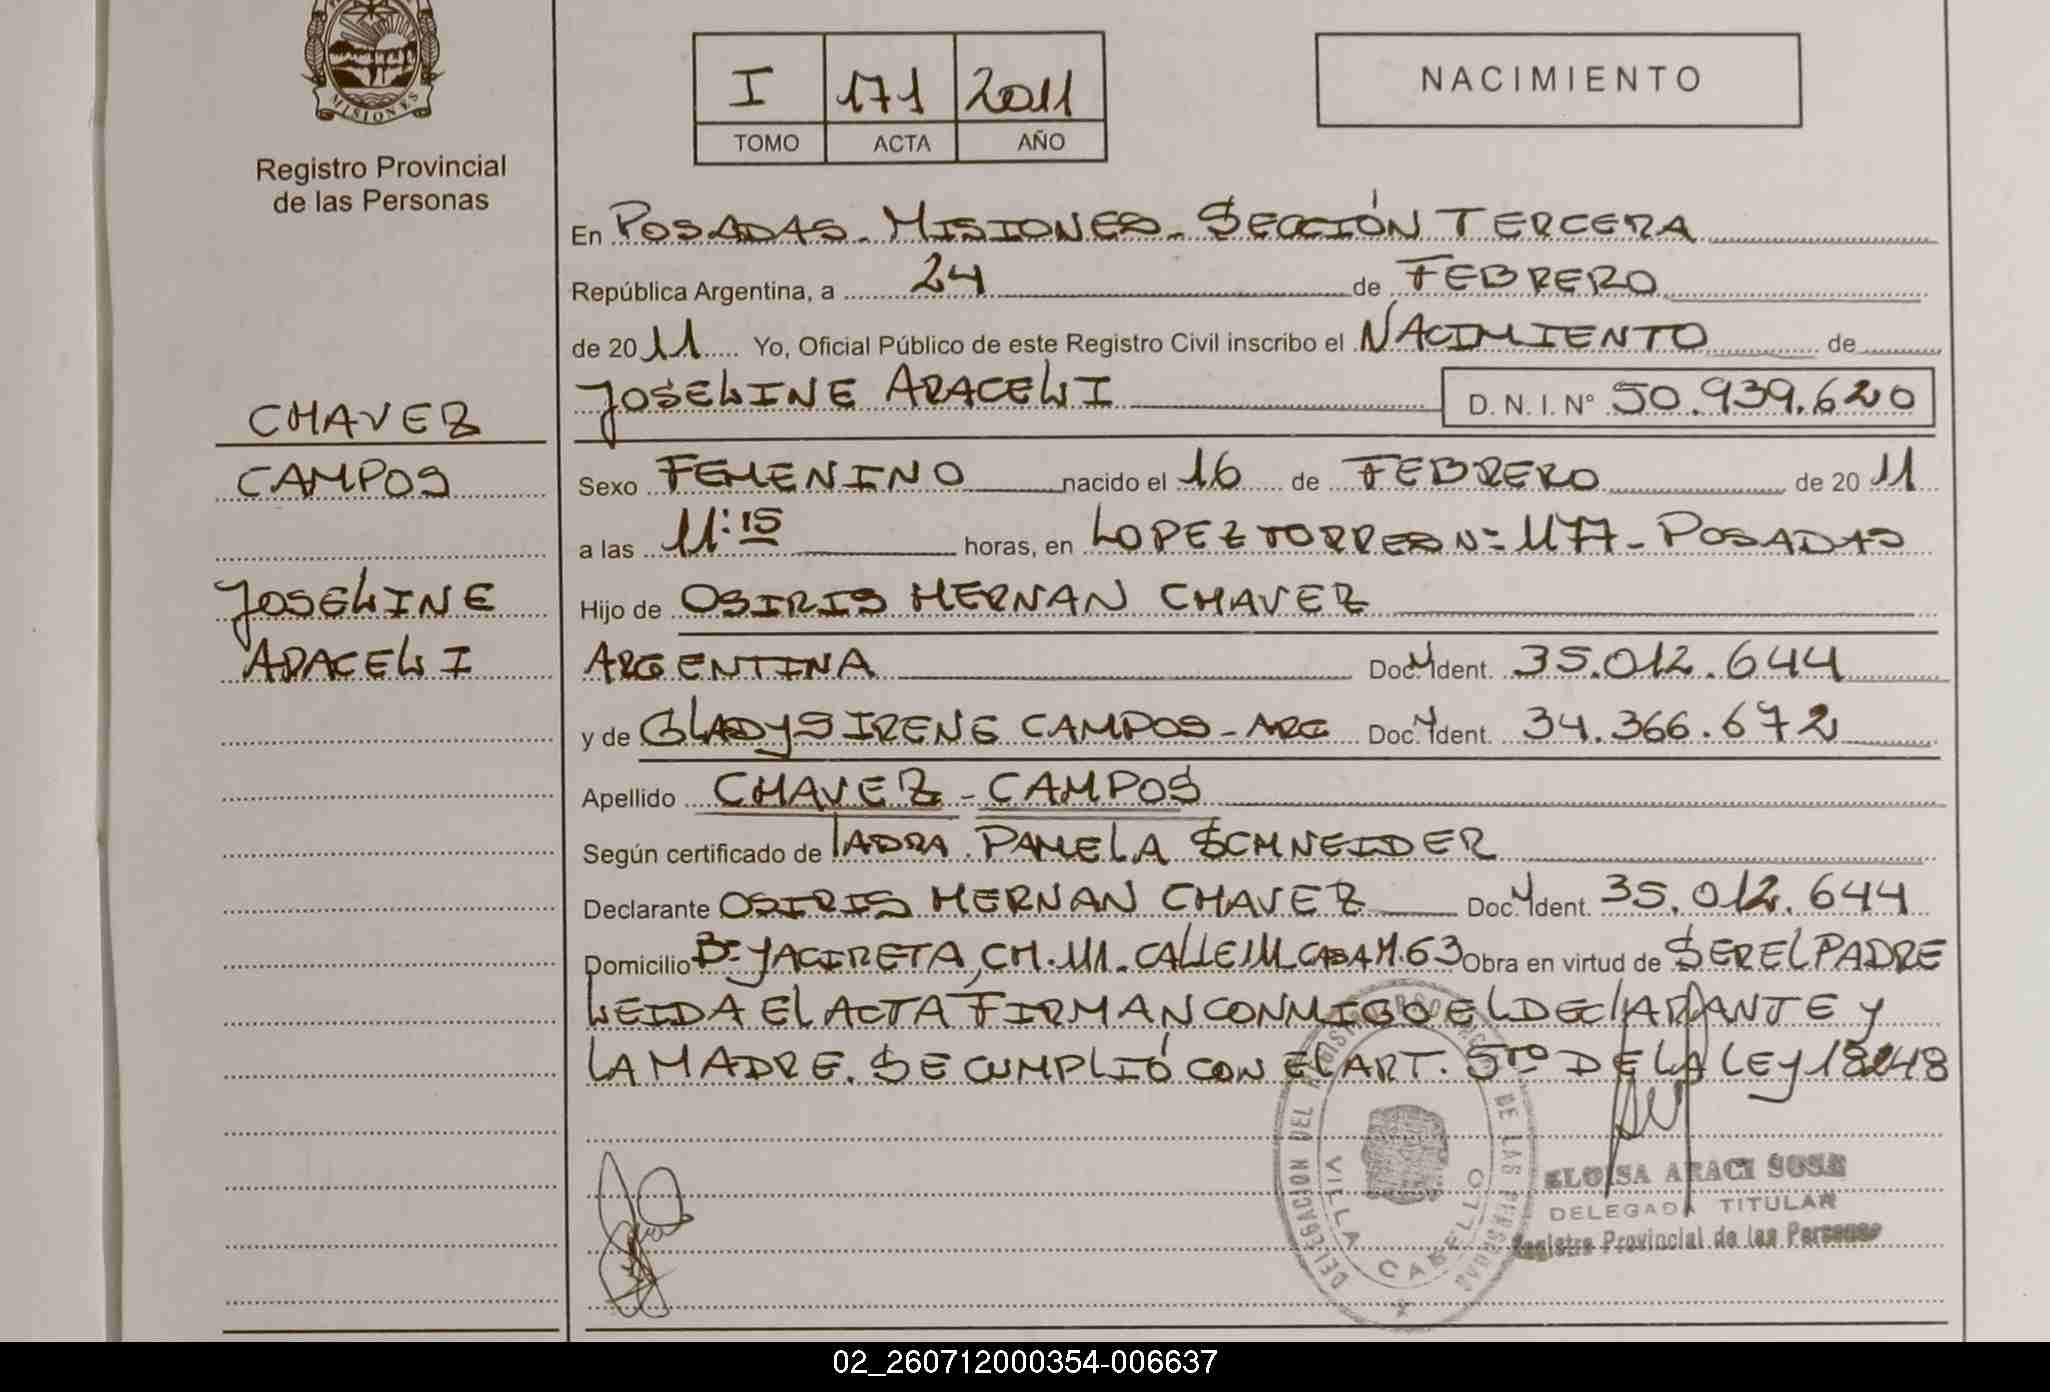 MISIONES
Registro Provincial
de las Personas
I 171 2011
TOMO ACTA AÑO
NACIMIENTO
En POSADAS - MISIONES - SECCIÓN TERCERA
República Argentina, a 24 de FEBRERO
de 2011 Yo, Oficial Público de este Registro Civil inscribo el NACIMIENTO de
JOSELINE ARACELI D. N. I. N° 50.939.620
CHAVEZ
CAMPOS
JOSELINE
ARACELI
Sexo FEMENINO nacido el 16 de FEBRERO de 2011
a las 11:15 horas, en LOPEZ TORRES Nº 1177 - POSADAS
Hijo de OSIRIS HERNAN CHAVEZ
ARGENTINA Doc. Ident. 35.012.644
y de GLADYS IRENE CAMPOS - ARG Doc. Ident. 34.366.672
Apellido CHAVEZ - CAMPOS
Según certificado de LA DRA. PAMELA SCHNEIDER
Declarante OSIRIS HERNAN CHAVEZ Doc. Ident. 35.012.644
Domicilio Bº YACIRETA, CH. 111 - CALLE CASA 63 Obra en virtud de SER EL PADRE
LEIDA EL ACTA FIRMAN CONMIGO EL DECLARANTE Y
LA MADRE. SE CUMPLIÓ CON EL ART. 5to DE LA LEY 18248
DELEGACION DEL REGISTRO PROVINCIAL DE LAS PERSONAS
VILLA CABELLO
ELOISA ARACI SOSA
DELEGADA TITULAR
Registro Provincial de las Personas
02_260712000354-006637